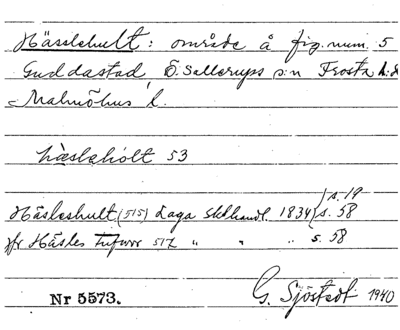 Hässlehult: område å fig. num. 5
Guddastad, Ö. Sallerups s:n Frosta h:d
Malmöhus l.
hàslahólt 53
s. 19
Häsleshult (515) Laga skthandl. 1834 s. 58
jfr Häsles 517 " " " s. 58
Nr 5573.
G. Sjöstedt 1940